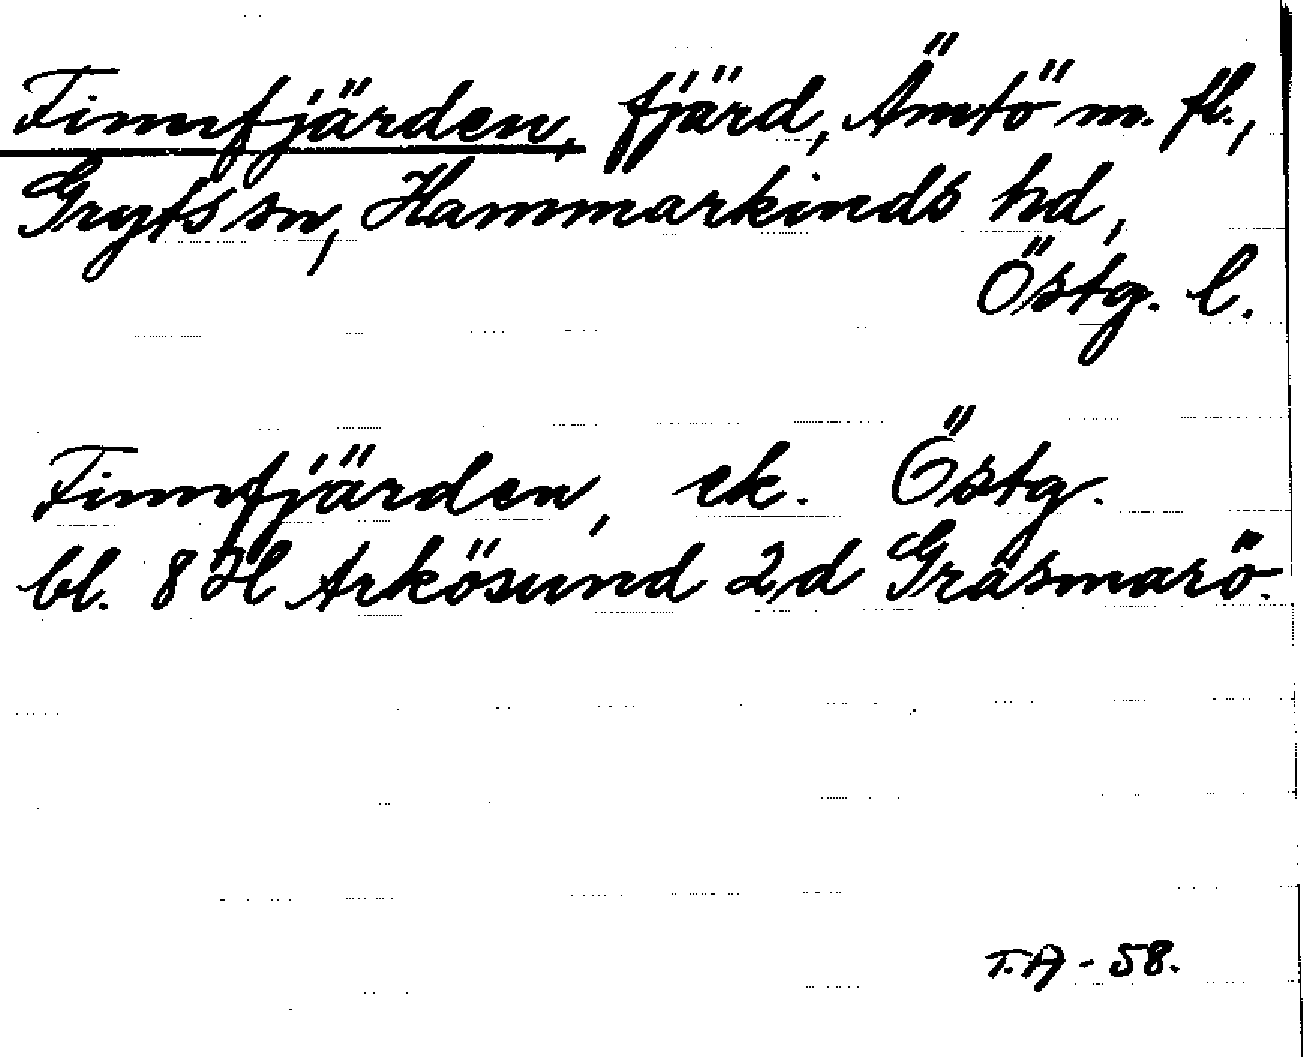 Finnfjärden, fjärd, Ämtö m. fl.,
Gryts sn, Hammarkinds hd,
Östg. l.
Finnfjärden, ek. Östg.
bl. 8 H Arkösund 2, d Gräsmarö.
T.A - 58.